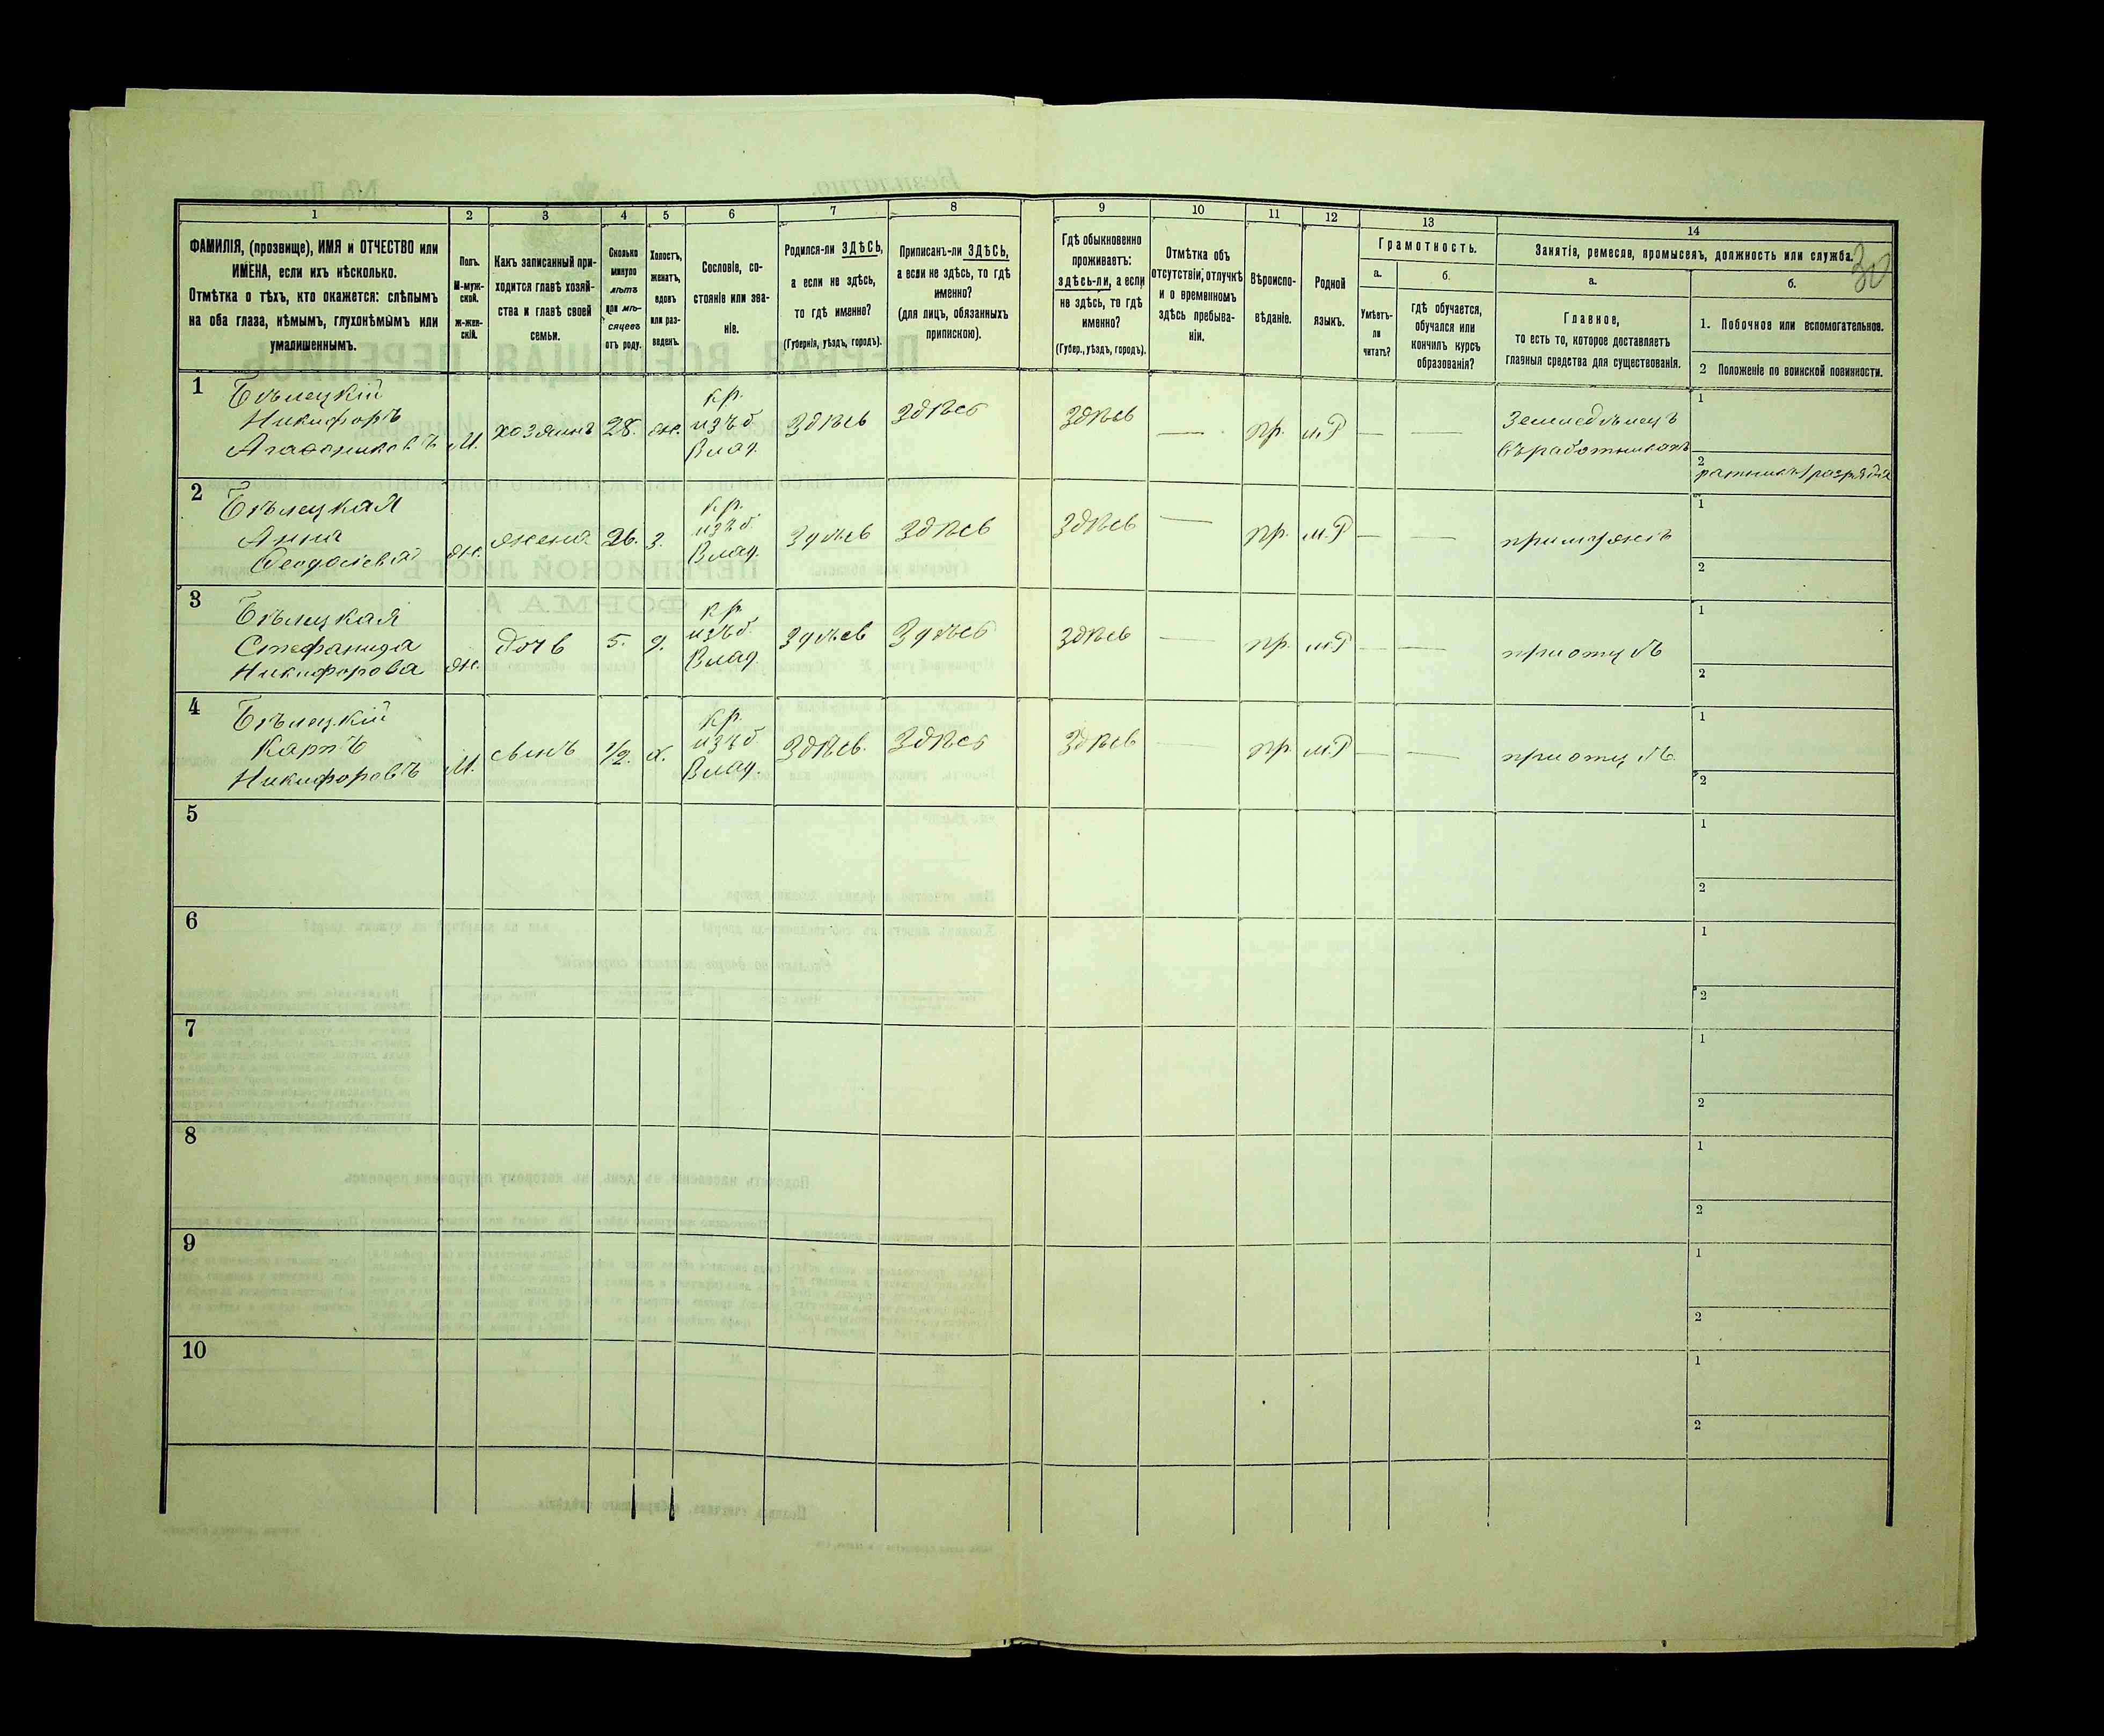 30
1 2 3 4 5 6 7 8 9 10 11 12 13 14
ФАМИЛІЯ, (прозвище), ИМЯ и ОТЧЕСТВО или
ИМЕНА, если ихъ нѣсколько.
Отмѣтка о тѣхъ, кто окажется: слѣпымъ
на оба глаза, нѣмымъ, глухонѣмымъ или
умалишеннымъ.
Полъ.
М-муж-
ской.
Ж-жен-
скій.
Какъ записанный при-
ходится главѣ хозяй-
ства и главѣ своей
семьи.
Сколько
минуло
лѣтъ
или мѣ-
сяцевъ
отъ роду.
Холостъ,
женатъ,
вдовъ
или раз-
веденъ.
Сословіе, со-
стояніе или зва-
ніе.
Родился-ли ЗДѢСЬ,
а если не здѣсь,
то гдѣ именно?
(Губернія, уѣздъ, городъ).
Приписанъ-ли ЗДѢСЬ,
а если не здѣсь, то гдѣ
именно?
(для лицъ, обязанныхъ
припискою).
Гдѣ обыкновенно
проживаетъ:
здѣсь-ли, а если
не здѣсь, то гдѣ
именно?
(Губер., уѣздъ, городъ).
Отмѣтка объ
отсутствіи, отлучкѣ
и о временномъ
здѣсь пребыва-
ніи.
Вѣроиспо-
вѣданіе.
Родной
языкъ.
Грамотность.
а.
Умѣетъ-
ли
читать?
б.
Гдѣ обучается,
обучался или
кончилъ курсъ
образованія?
Занятія, ремесло, промыселъ, должность или служба.
а.
Главное,
то есть то, которое доставляетъ
главныя средства для существованія.
б.
1. Побочное или вспомогательное.
2 Положеніе по воинской повинности.
1
Бѣлецкій
Никифоръ
Агафониковъ
М.
хозяинъ
28.
ж.
кр.
изъ б.
Влад.
Здѣсь
Здѣсь
Здѣсь
—
пр.
м.Р
—
—
Земледѣлецъ
въ работникахъ
1
2
ратникъ 1 разряда
2
Бѣлецкая
Анна
Феодосіева
ж.
жена
26.
з.
кр.
изъ б.
Влад.
Здѣсь
Здѣсь
Здѣсь
—
пр.
м.Р
—
—
при мужѣ
1
2
3
Бѣлецкая
Стефанида
Никифорова
ж.
дочь
5.
д.
кр.
изъ б.
Влад
Здѣсь
Здѣсь
Здѣсь
—
пр.
м.Р
—
—
при отцѣ
1
2
4
Бѣлецкій
Карпъ
Никифоровъ
М.
сынъ
1/2.
х.
кр.
изъ б
Влад.
Здѣсь.
Здѣсь
Здѣсь
—
пр.
м.Р
—
—
при отцѣ.
1
2
5
1
2
6
1
2
7
1
2
8
1
2
9
1
2
10
1
2